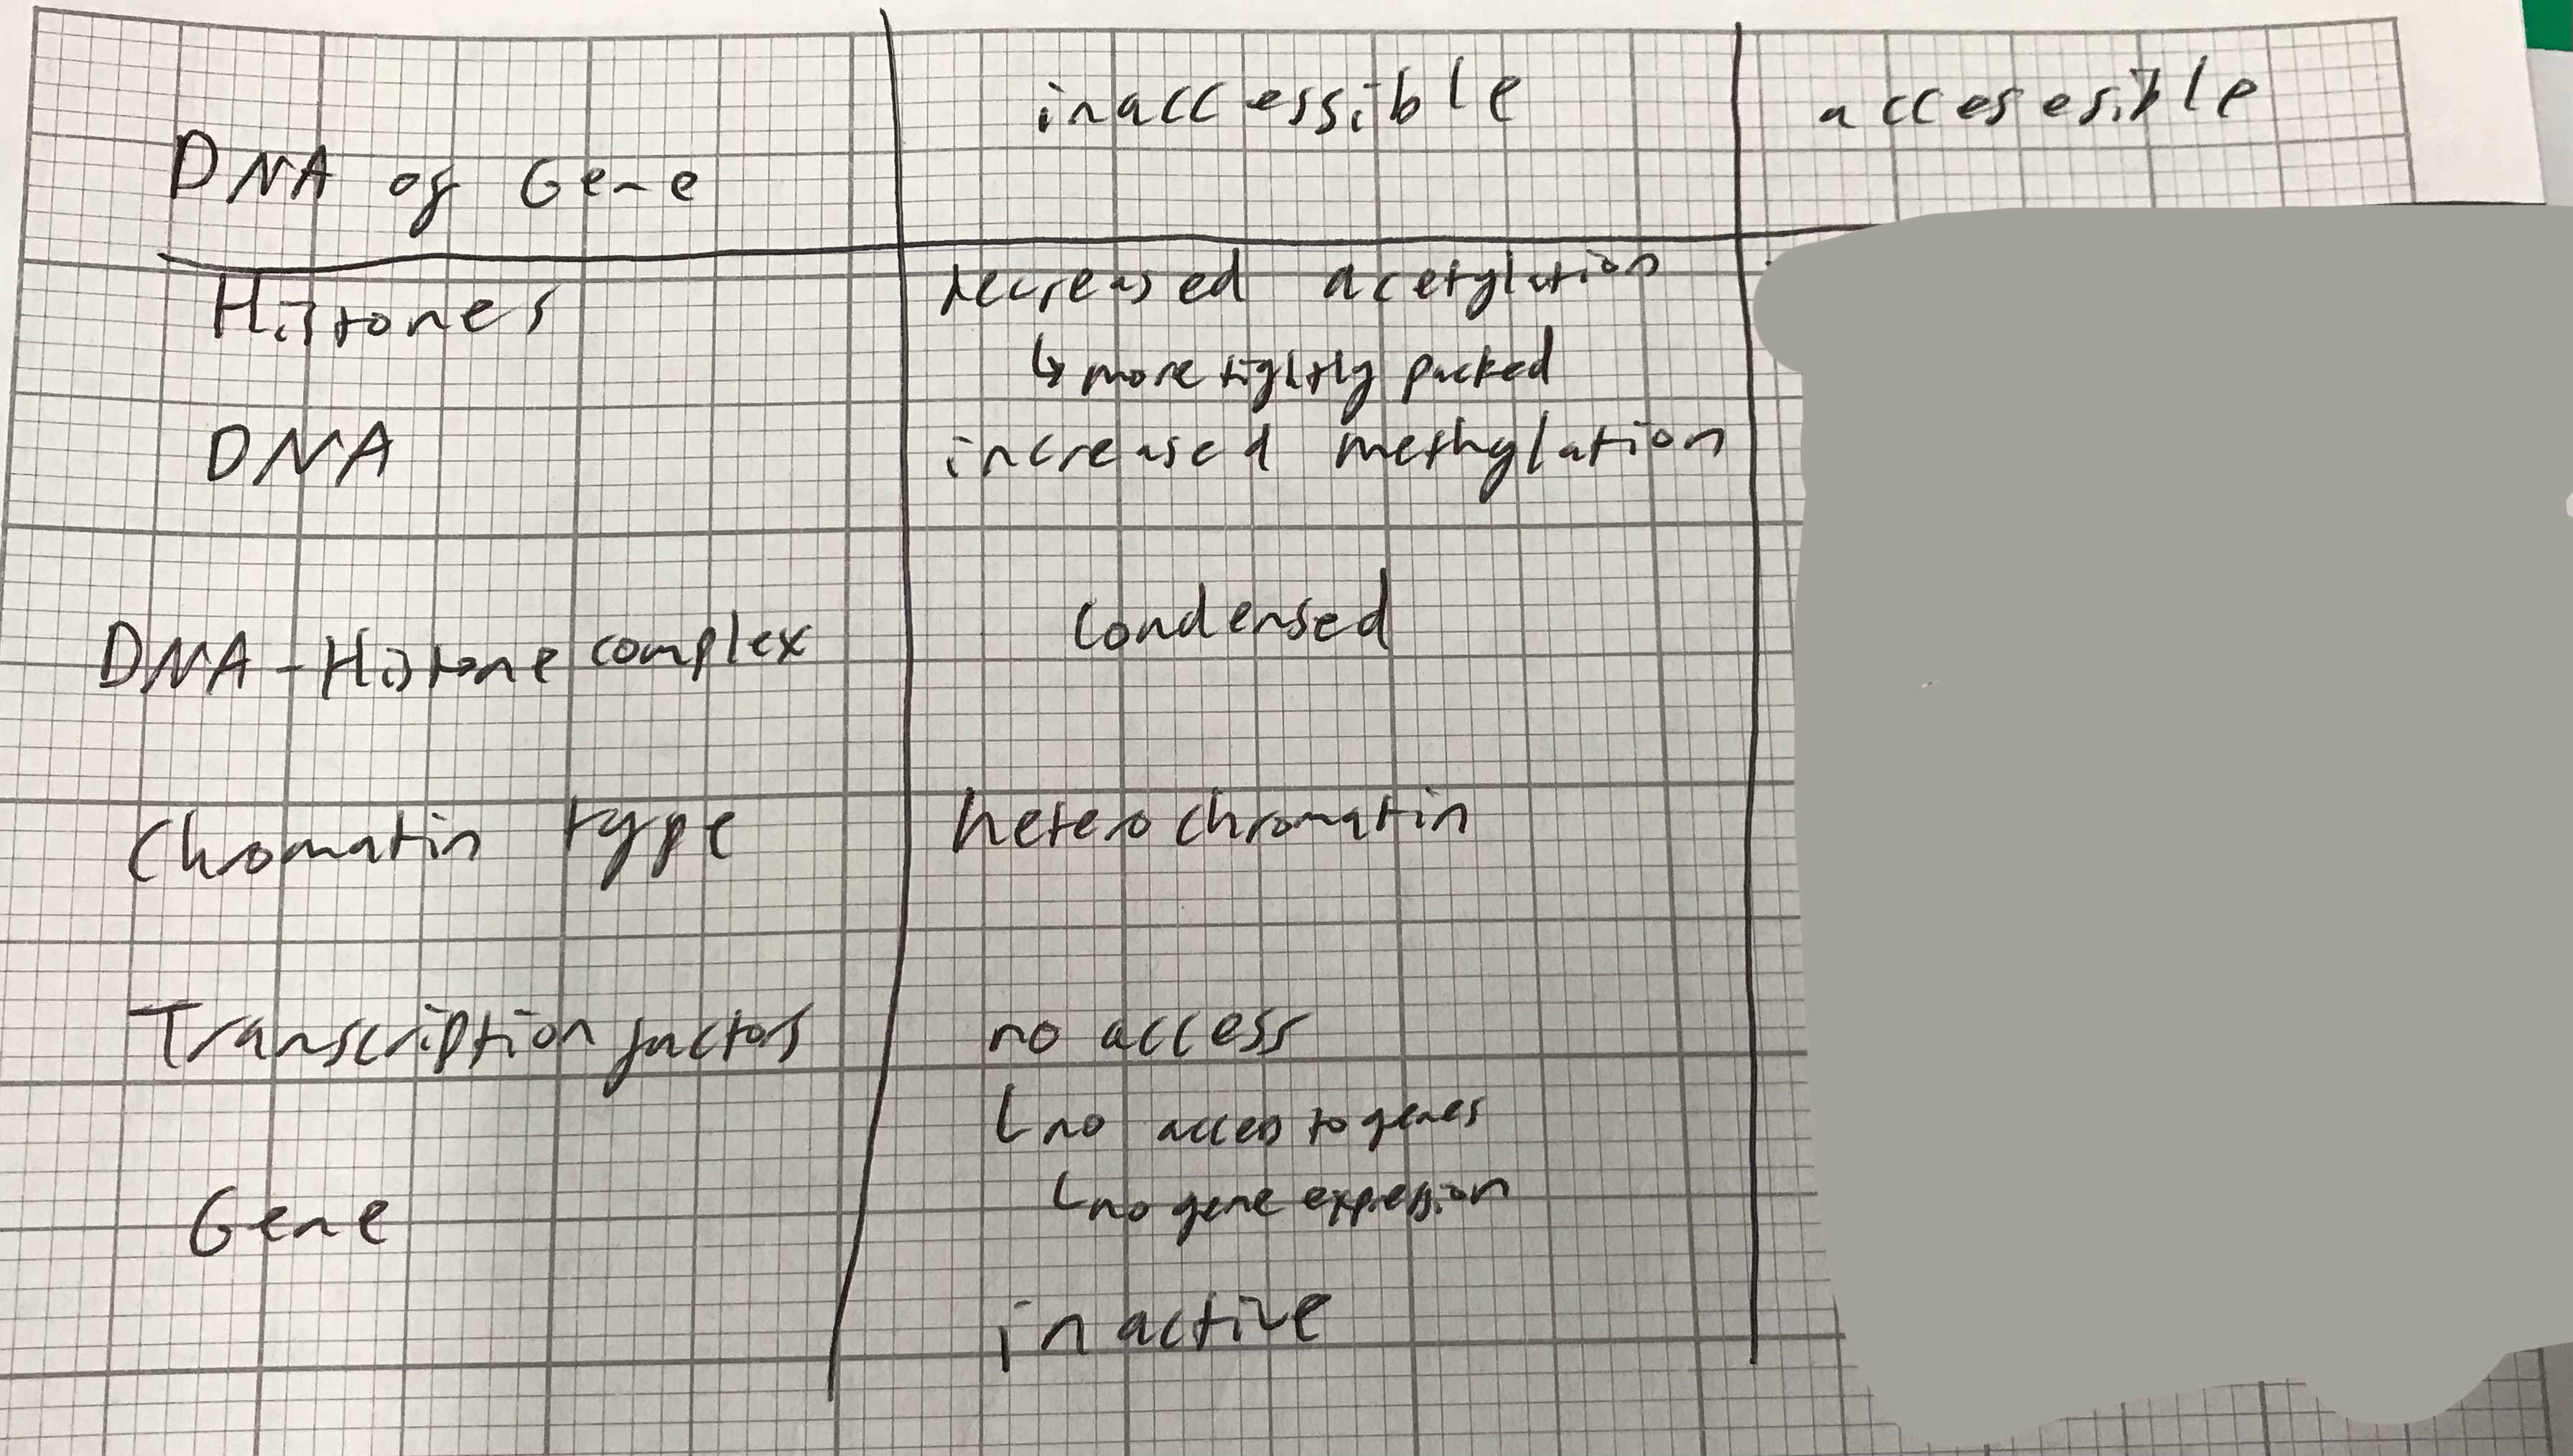 inaccessible
accesesible
DNA of Gene
Histones
decreased acetylation
↳ more tightly packed
DNA
increased methylation
DNA-Histone complex
Condensed
Chromatin type
heterochromatin
Transcription factors
no access
└ no access to genes
└ no gene expression
Gene
inactive